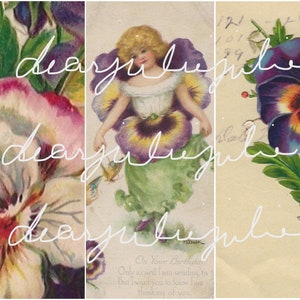 dearjuliejulie
dearjuliejulie
dearjuliejulie
On Your Birthday
Only a card I am sending to
But I want you to know I am
thinking of you.